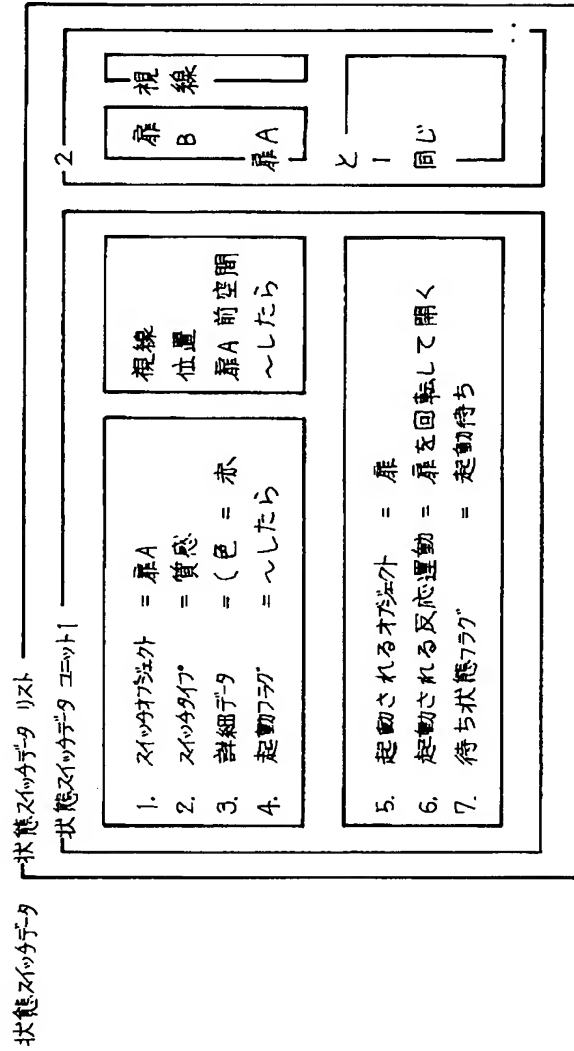 状態スイッチデータ
状態スイッチデータ リスト
状態スイッチデータ ユニット1
1. スイッチオブジェクト = 扉A
2. スイッチタイプ = 質感
3. 詳細データ = (色 = 赤
4. 起動フラグ = ~したら
視線
位置
扉A 前空間
~したら
5. 起動されるオブジェクト = 扉
6. 起動される反応運動 = 扉を回転して開く
7. 待ち状態フラグ = 起動待ち
2
扉
B
扉A
視
線
と
1
同じ
‥